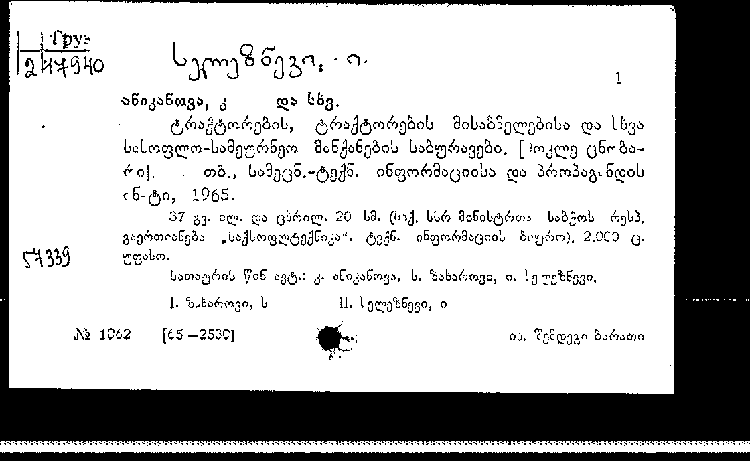 Груз
2 47940
სელეზნევი, ი.
1
ანიკანოვა, კ და სხვ.
ტრაქტორების, ტრაქტორების მისაბმელებისა და სხვა
სასოფლო-სამეურნეო მანქანების საბურავები. [მოკლე ცნობა-
რი]. თბ., სამეცნ.-ტექნ. ინფორმაციისა და პროპაგანდის
ინ-ტი, 1965.
37 გვ. ილ. და ცხრილ. 20 სმ. (საქ. სსრ მინისტრთა საბჭოს რესპ.
გაერთიანება „საქსოფლტექნიკა“. ტექნ. ინფორმაციის ბიურო). 2.000 ც.
უფასო.
57339
სათაურის წინ ავტ.: კ. ანიკანოვა, ს. ზახაროვი, ი. სელეზნევი.
I. ზახაროვი, ს II. სელეზნევი, ი
№ 1062 [65—2530]
იხ. შემდეგი ბარათი